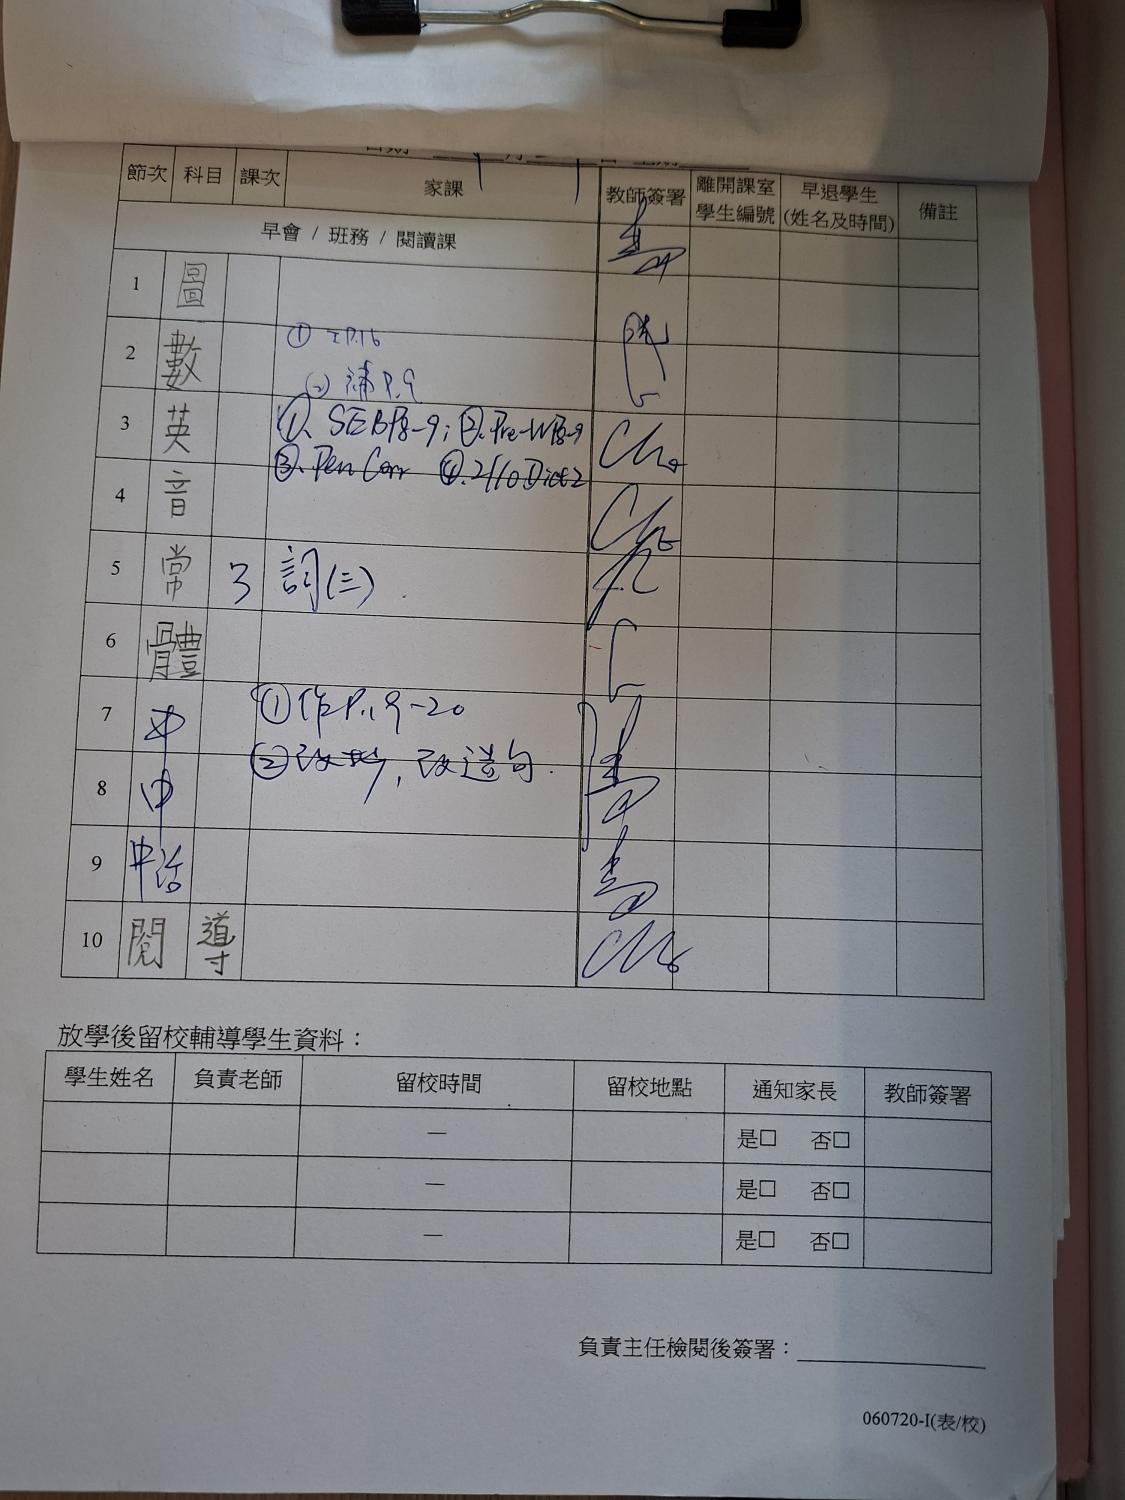 節次 科目 課次 家課 教師簽署 離開課室學生編號 早退學生(姓名及時間) 備註
早會 / 班務 / 閱讀課
1 圖
2 數 ① P.16
② 補 P.9
3 英 ①. SEB P8-9; ②. Pre-WP8-9
③. Pen Corr ④. 2/10 Dict 2
4 音
5 常 3 詞(三)
6 體
7 中 ① 作P.19-20
② 改造句
8 中
9
10 閱 導
放學後留校輔導學生資料：
學生姓名 負責老師 留校時間 留校地點 通知家長 教師簽署
— 是□ 否□
— 是□ 否□
— 是□ 否□
負責主任檢閱後簽署：
060720-I(表/校)